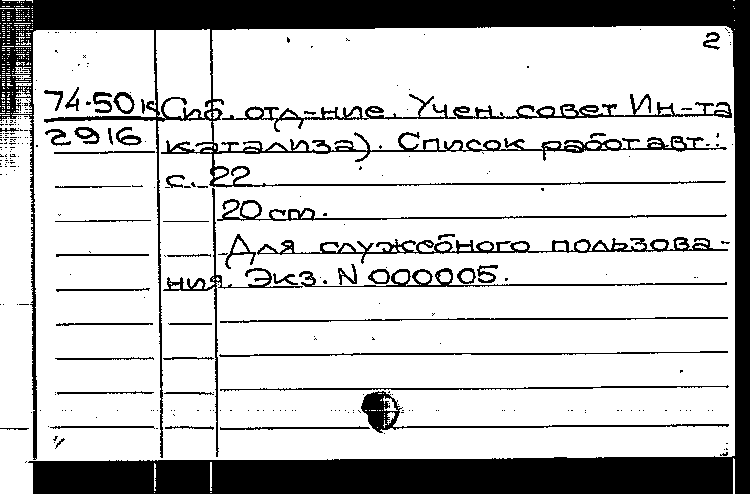 2
74-50к Сиб. отд-ние. Учен. совет Ин-та
2916 катализа). Список работ авт.:
с. 22.
20 cm.
Для служебного пользова-
ния. Экз. N 000005.